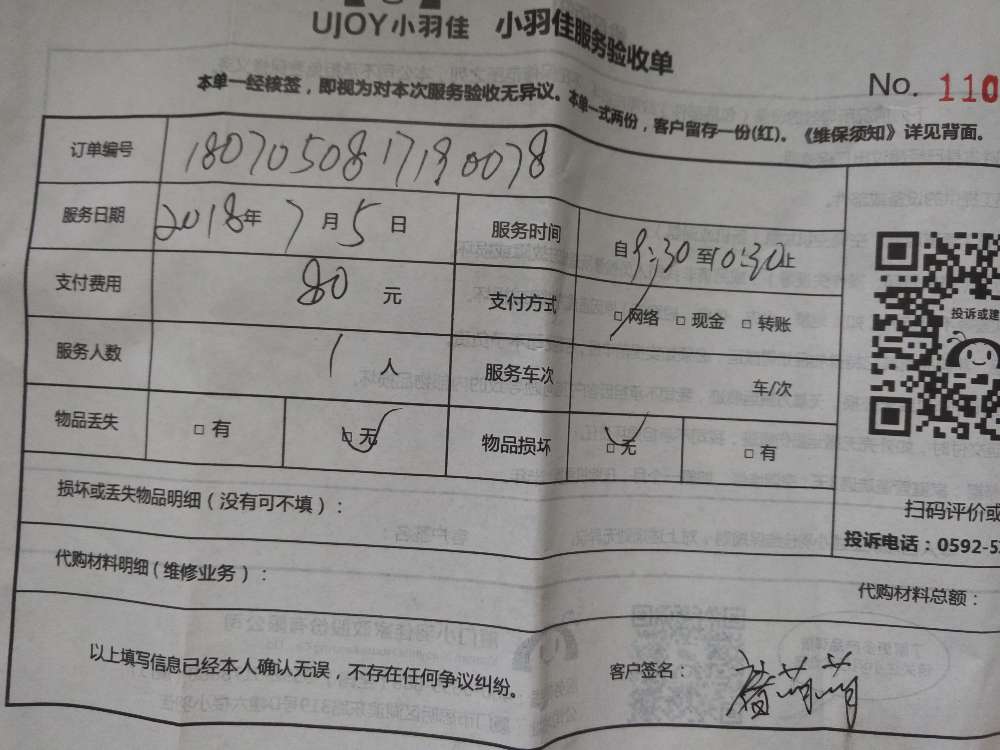 UJOY小羽佳 小羽佳服务验收单
No. 110
本单一经核签，即视为对本次服务验收无异议。本单一式两份，客户留存一份(红)。《维保须知》详见背面。
订单编号 1807050817190078
服务日期 2018年 7 月 5 日 服务时间 自 9:30 至 10:30 止
支付费用 80 元 支付方式 □ 网络 □ 现金 □ 转账
投诉或建
服务人数 1 人 服务车次 车/次
物品丢失 □ 有 □ 无 物品损坏 □ 无 □ 有
损坏或丢失物品明细（没有可不填）：
扫码评价或
投诉电话：0592-5
代购材料明细（维修业务）：
代购材料总额：
以上填写信息已经本人确认无误，不存在任何争议纠纷。 客户签名：